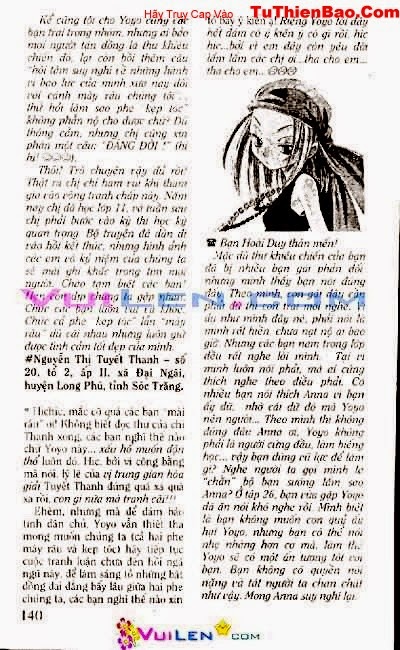 Hãy Truy Cập Vào
TuThienBao.Com
Kể cũng tội cho Yoyo cùng các
bạn trai trong nhóm, nhưng ai bảo
mọi người tán đồng lá thư khiêu
chiến đó, lại còn bồi thêm câu
"hỏi tâm suy nghĩ về những hành
vi bạo lực của mình xưa nay đối
với cánh mày râu chúng tôi",
thử hỏi làm sao phe "kẹp tóc"
không phẫn nộ cho được chứ? Dù
thông cảm, nhưng chị cũng xin
phán một câu: "ĐÁNG ĐỜI!" (hi
hi
Thôi! Trò chuyện vậy đủ rồi!
Thật ra chị chỉ ham vui khi tham
gia vào vòng tranh chấp này. Năm
nay chị đã học lớp 11, vả tuần sau
chị phải bước vào kỳ thi học kỳ
quan trọng. Bộ truyện đề dần đi
vào hồi kết thúc, nhưng hình ảnh
các em và kỷ niệm của chúng ta
sẽ mãi ghi khắc trong tim mọi
người. Chào tạm biệt các bạn!
gặp nhau!
Chúc các bạn luôn vui và khỏe.
Chúc cả phe "kẹp tóc" lẫn "mày
râu" dù cãi nhau nhưng luôn giữ
được tình cảm tốt đẹp của mình!
#Nguyễn Thị Tuyết Thanh – số
20, tổ 2, ấp II, xã Đại Ngãi,
huyện Long Phú, tỉnh Sóc Trăng.
* Hichic, mắc cỡ quá các bạn "mài
râu" ơi! Không biết đọc thư của chị
Thanh xong, các bạn nghĩ thế nào
chứ Yoyo này... xấu hổ muốn độn
thổ luôn đó. Hic, bởi vì công bằng
mà nói, lý lẽ của vị trung gian hòa
giải Tuyết Thanh đúng quá xá quà
xa rồi, con gì nữa mà tranh cãi!!!
Ehèm, nhưng mà để đảm bảo
tính dân chủ, Yoyo vẫn thiết tha
mong muốn chúng ta (cả hai phe
mày râu và kẹp tóc) hãy tiếp tục
cuộc tranh luận chưa đến hồi ngã
ngũ này, để làm sáng tỏ những bất
đồng dai dẳng bấy lâu giữa hai phe
chúng ta, các bạn nghĩ thế nào xin
140
tỏ bày ý kiến ạ! Riêng Yoyo tôi đây
hết dám có ý kiến ý cò gì rồi, híc
híc...bởi vì em đây còn yếu đời
lắm lắm các chị ơi...tha cho em...
tha cho em...
☎ Bạn Hoài Duy thân mến!
Mặc dù thư khiêu chiến của bạn
đã bị nhiều bạn gái phản đối
nhưng mình thấy bạn nói đúng
đấy. Theo mình, con gái đây cần
phải để con trai mới nghe. Ví
dụ như mình đây nè, phải nói là
mình rất hiền, chưa nạt nộ ai bao
giờ. Nhưng các bạn nam trong lớp
đều rất nghe lời mình. Tại vì
mình luôn nói phải, mà ai cũng
thích nghe theo điều phải. Có
nhiều bạn nói thích Anna vì bạn
ấy dữ, nhờ cái dữ đó mà Yoyo
nên người... Theo mình thì không
đúng đâu Anna ơi. Yoyo không
phải là người cứng đầu, làm biếng
học... vậy bạn dùng vũ lực để làm
gì? Nghe người ta gọi mình là
"chằn" bộ bạn sướng lắm sao
Anna? Ở tập 26, bạn vừa gặp Yoyo
đã ăn nói khó nghe rồi. Mình biết
là bạn không muốn con quỷ ám
hại Yoyo, nhưng bạn có thể nói
nhẹ nhàng hơn cơ mà, làm thế
Yoyo sẽ có một ấn tượng tốt với
bạn. Bạn không có quyền nói
nặng và tát người ta chan chát
như vậy. Mong Anna suy nghĩ lại.
VUILEN.COM
VUILEN.COM